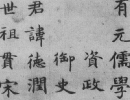 有元儒學
資政
御史
君諱德潤
世祖貫宋